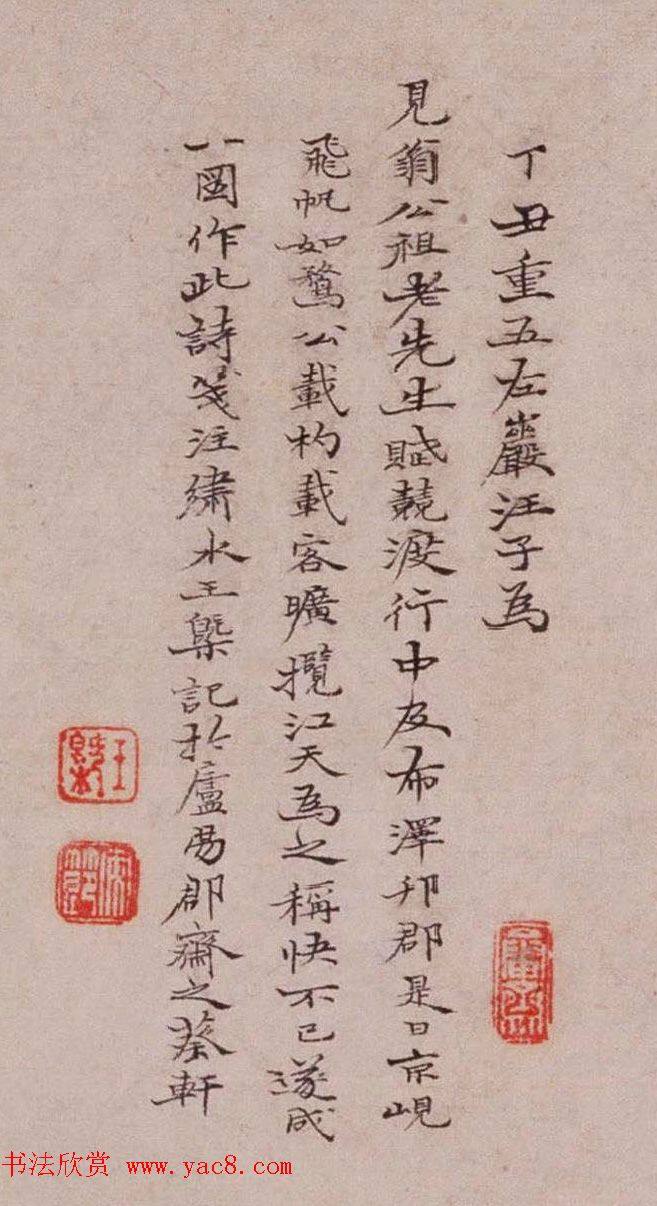 丁丑重五左巖汪子為
見翁公祖老先生賦競渡行中及布澤邗郡是日京峴
飛帆如鶩公載杓載客曠攬江天為之稱快不已遂成
一圖作此詩箋注繡水王槩記於廬易郡齋之蔡軒
王槩
書法欣賞 www.yac8.com